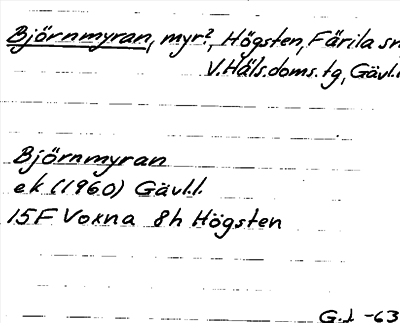 Björnmyran, myr?, Högsten, Färila sn
V.Häls.doms.tg, Gävl.l
Björnmyran
ek (1960) Gävl.l.
15F Voxna 8h Högsten
G.J. -63